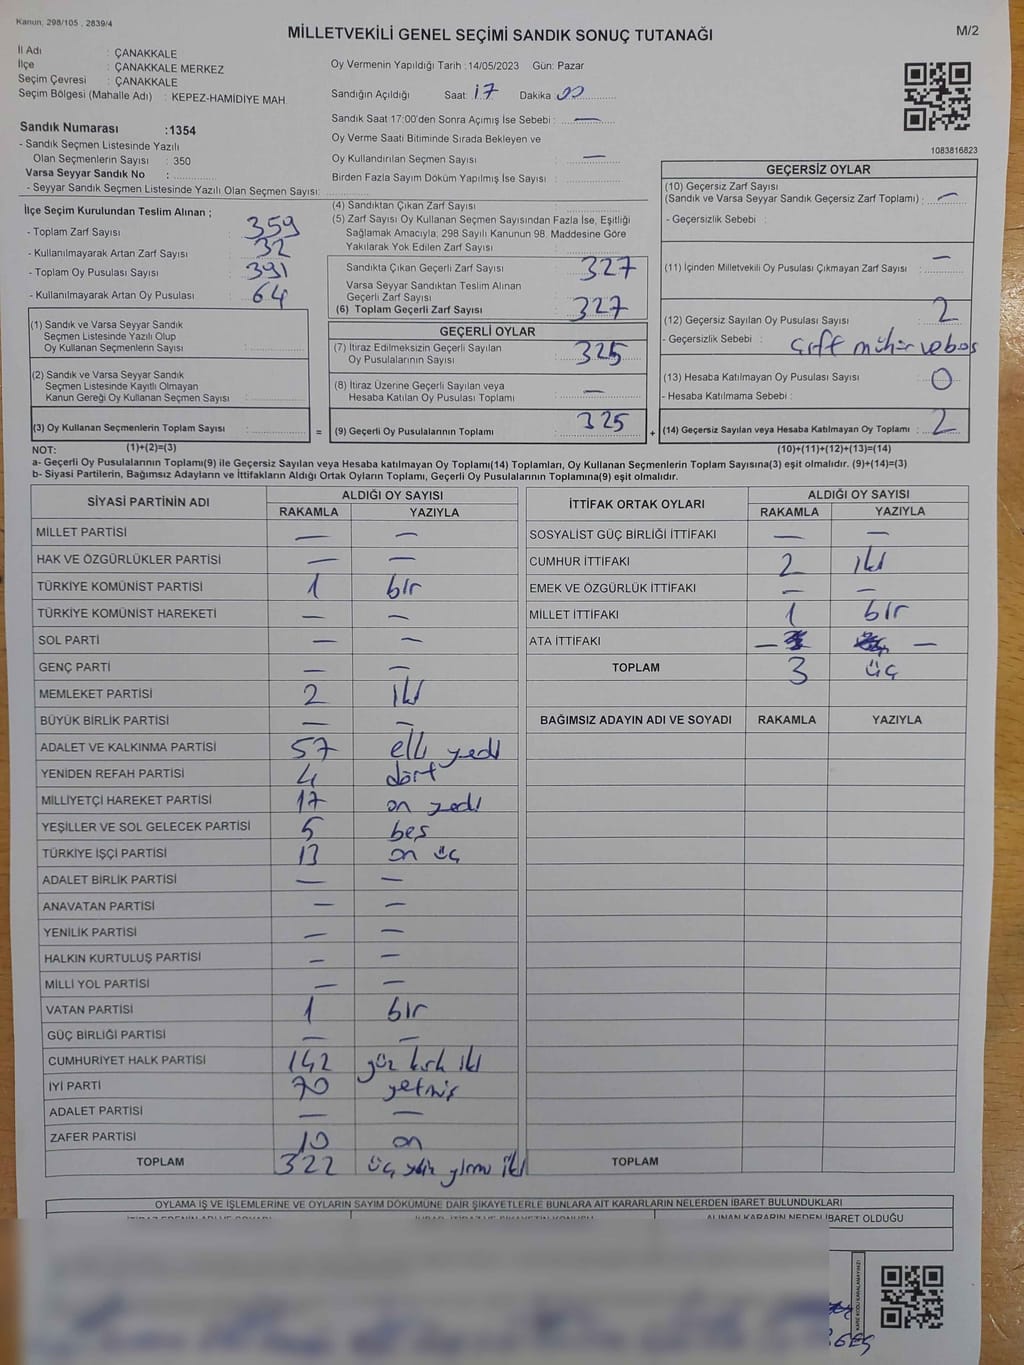 Kanun, 298/105 , 2839/4
MİLLETVEKİLİ GENEL SEÇİMİ SANDIK SONUÇ TUTANAĞI
M/2
İl Adı : ÇANAKKALE
İlçe : ÇANAKKALE MERKEZ
Seçim Çevresi : ÇANAKKALE
Seçim Bölgesi (Mahalle Adı) : KEPEZ-HAMİDİYE MAH.
Sandık Numarası :1354
- Sandık Seçmen Listesinde Yazılı
Olan Seçmenlerin Sayısı : 350
Varsa Seyyar Sandık No :
- Seyyar Sandık Seçmen Listesinde Yazılı Olan Seçmen Sayısı:
Oy Vermenin Yapıldığı Tarih :14/05/2023 Gün: Pazar
Sandığın Açıldığı Saat: 17 Dakika 00
Sandık Saat 17:00'den Sonra Açımış İse Sebebi : —
Oy Verme Saati Bitiminde Sırada Bekleyen ve
Oy Kullandırılan Seçmen Sayısı : —
Birden Fazla Sayım Döküm Yapılmış İse Sayısı :
1083816823
İlçe Seçim Kurulundan Teslim Alınan ;
- Toplam Zarf Sayısı : 359
- Kullanılmayarak Artan Zarf Sayısı : 32
- Toplam Oy Pusulası Sayısı : 391
- Kullanılmayarak Artan Oy Pusulası : 64
(1) Sandık ve Varsa Seyyar Sandık
Seçmen Listesinde Yazılı Olup
Oy Kullanan Seçmenlerin Sayısı :
(2) Sandık ve Varsa Seyyar Sandık
Seçmen Listesinde Kayıtlı Olmayan
Kanun Gereği Oy Kullanan Seçmen Sayısı :
(3) Oy Kullanan Seçmenlerin Toplam Sayısı : =
(4) Sandıktan Çıkan Zarf Sayısı :
(5) Zarf Sayısı Oy Kullanan Seçmen Sayısından Fazla İse, Eşitliği
Sağlamak Amacıyla, 298 Sayılı Kanunun 98. Maddesine Göre
Yakılarak Yok Edilen Zarf Sayısı :
Sandıkta Çıkan Geçerli Zarf Sayısı : 327
Varsa Seyyar Sandıktan Teslim Alınan
Geçerli Zarf Sayısı :
(6) Toplam Geçerli Zarf Sayısı : 327
GEÇERLİ OYLAR
(7) İtiraz Edilmeksizin Geçerli Sayılan
Oy Pusulalarının Sayısı : 325
(8) İtiraz Üzerine Geçerli Sayılan veya
Hesaba Katılan Oy Pusulası Toplamı : —
(9) Geçerli Oy Pusulalarının Toplamı : 325 +
GEÇERSİZ OYLAR
(10) Geçersiz Zarf Sayısı
(Sandık ve Varsa Seyyar Sandık Geçersiz Zarf Toplamı) : —
- Geçersizlik Sebebi :
(11) İçinden Milletvekili Oy Pusulası Çıkmayan Zarf Sayısı : —
(12) Geçersiz Sayılan Oy Pusulası Sayısı : 2
- Geçersizlik Sebebi : Çift mühür ve boş
(13) Hesaba Katılmayan Oy Pusulası Sayısı : 0
- Hesaba Katılmama Sebebi :
(14) Geçersiz Sayılan veya Hesaba Katılmayan Oy Toplamı : 2
NOT: (1)+(2)=(3) (10)+(11)+(12)+(13)=(14)
a- Geçerli Oy Pusulalarının Toplamı(9) ile Geçersiz Sayılan veya Hesaba katılmayan Oy Toplamı(14) Toplamları, Oy Kullanan Seçmenlerin Toplam Sayısına(3) eşit olmalıdır. (9)+(14)=(3)
b- Siyasi Partilerin, Bağımsız Adayların ve İttifakların Aldığı Ortak Oyların Toplamı, Geçerli Oy Pusulalarının Toplamına(9) eşit olmalıdır.
SİYASİ PARTİNİN ADI ALDIĞI OY SAYISI
RAKAMLA YAZIYLA
MİLLET PARTİSİ — —
HAK VE ÖZGÜRLÜKLER PARTİSİ — —
TÜRKİYE KOMÜNİST PARTİSİ 1 bir
TÜRKİYE KOMÜNİST HAREKETİ — —
SOL PARTİ — —
GENÇ PARTİ — —
MEMLEKET PARTİSİ 2 iki
BÜYÜK BİRLİK PARTİSİ — —
ADALET VE KALKINMA PARTİSİ 57 elli yedi
YENİDEN REFAH PARTİSİ 4 dört
MİLLİYETÇİ HAREKET PARTİSİ 17 on yedi
YEŞİLLER VE SOL GELECEK PARTİSİ 5 beş
TÜRKİYE İŞÇİ PARTİSİ 13 on üç
ADALET BİRLİK PARTİSİ — —
ANAVATAN PARTİSİ — —
YENİLİK PARTİSİ — —
HALKIN KURTULUŞ PARTİSİ — —
MİLLİ YOL PARTİSİ — —
VATAN PARTİSİ 1 bir
GÜÇ BİRLİĞİ PARTİSİ — —
CUMHURİYET HALK PARTİSİ 142 yüz kırk iki
İYİ PARTİ 70 yetmiş
ADALET PARTİSİ — —
ZAFER PARTİSİ 10 on
TOPLAM 322 üç yüz yirmi iki
İTTİFAK ORTAK OYLARI ALDIĞI OY SAYISI
RAKAMLA YAZIYLA
SOSYALİST GÜÇ BİRLİĞİ İTTİFAKI — —
CUMHUR İTTİFAKI 2 iki
EMEK VE ÖZGÜRLÜK İTTİFAKI — —
MİLLET İTTİFAKI 1 bir
ATA İTTİFAKI — —
TOPLAM 3 üç
BAĞIMSIZ ADAYIN ADI VE SOYADI RAKAMLA YAZIYLA
TOPLAM
OYLAMA İŞ VE İŞLEMLERİNE VE OYLARIN SAYIM DÖKÜMÜNE DAİR ŞİKAYETLERLE BUNLARA AİT KARARLARIN NELERDEN İBARET BULUNDUKLARI
ALINAN KARARIN NEDEN İBARET OLDUĞU